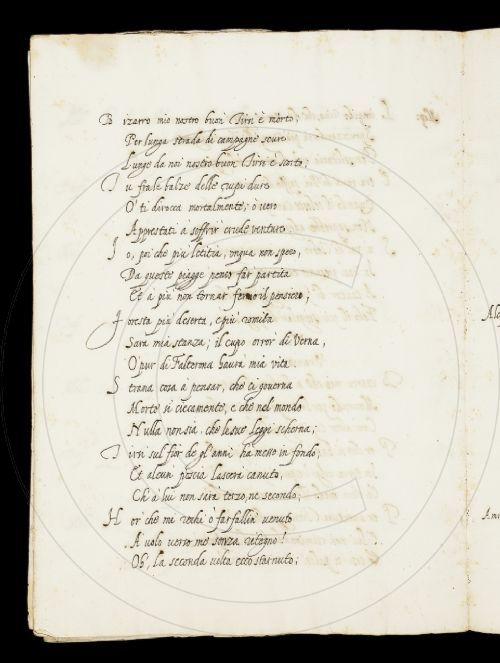 Bizarro mio nostro buon Tirsi è morto;
Per lunga strada di campagne scure
Lunge da noi nostro buon Tirsi è scorto;
Tu fra le balze delle rupi dure
O' ti dirocca mortalmente; ò vero
Apprestati à soffrir crude venture.
Io, poi che più letitia unqua non spero,
Da queste piagge penso far partita
Et à più non tornar fermo il pensiero;
Foresta più deserta, e più romita
Sarà mia stanza; il cupo orror di Verna,
O' pur di Falterona haurà mia vita.
Strana cosa à pensar, che ci governa
Morte si ciecamente, e che nel mondo
Nulla non sia, che le sue leggi scherna;
Tirsi sul fior de gl'anni hà messo in fondo;
Et alcun poscia lascerà canuto,
Ch'à lui non sarà terzo, ne secondo;
Hor che mi rechi ò farfallin venuto
A volo verso me senza ritegno?
Oh, la seconda volta ecco starnuto;
Alc
Am